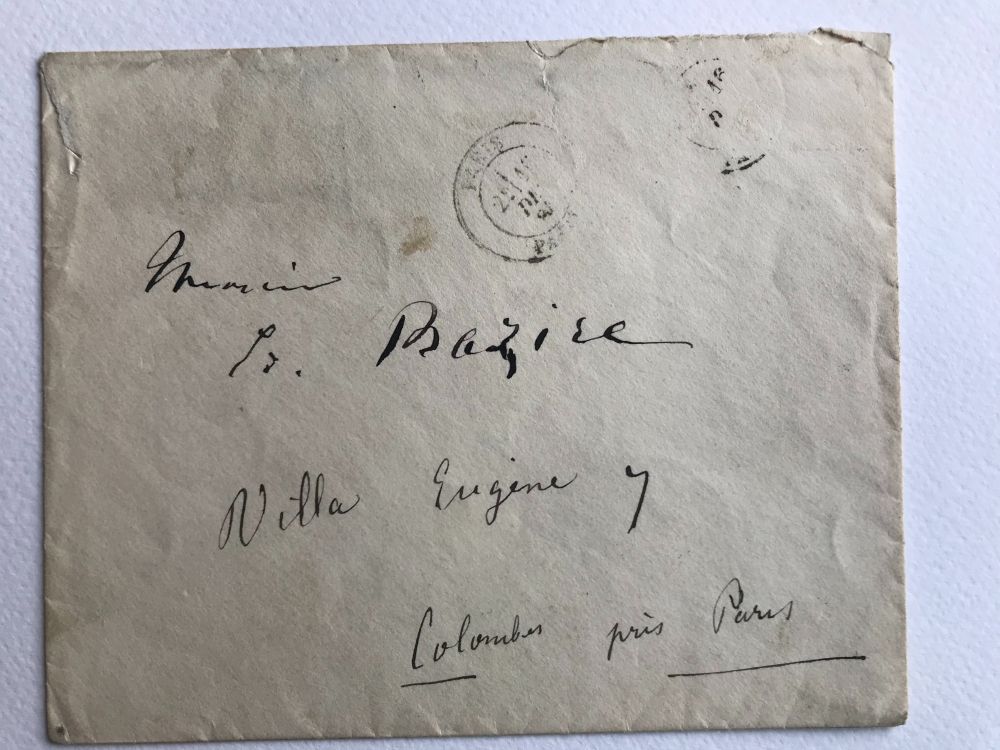 PARIS
PARIS
Monsieur
Bazire
Villa Eugène 7
Colombes près Paris